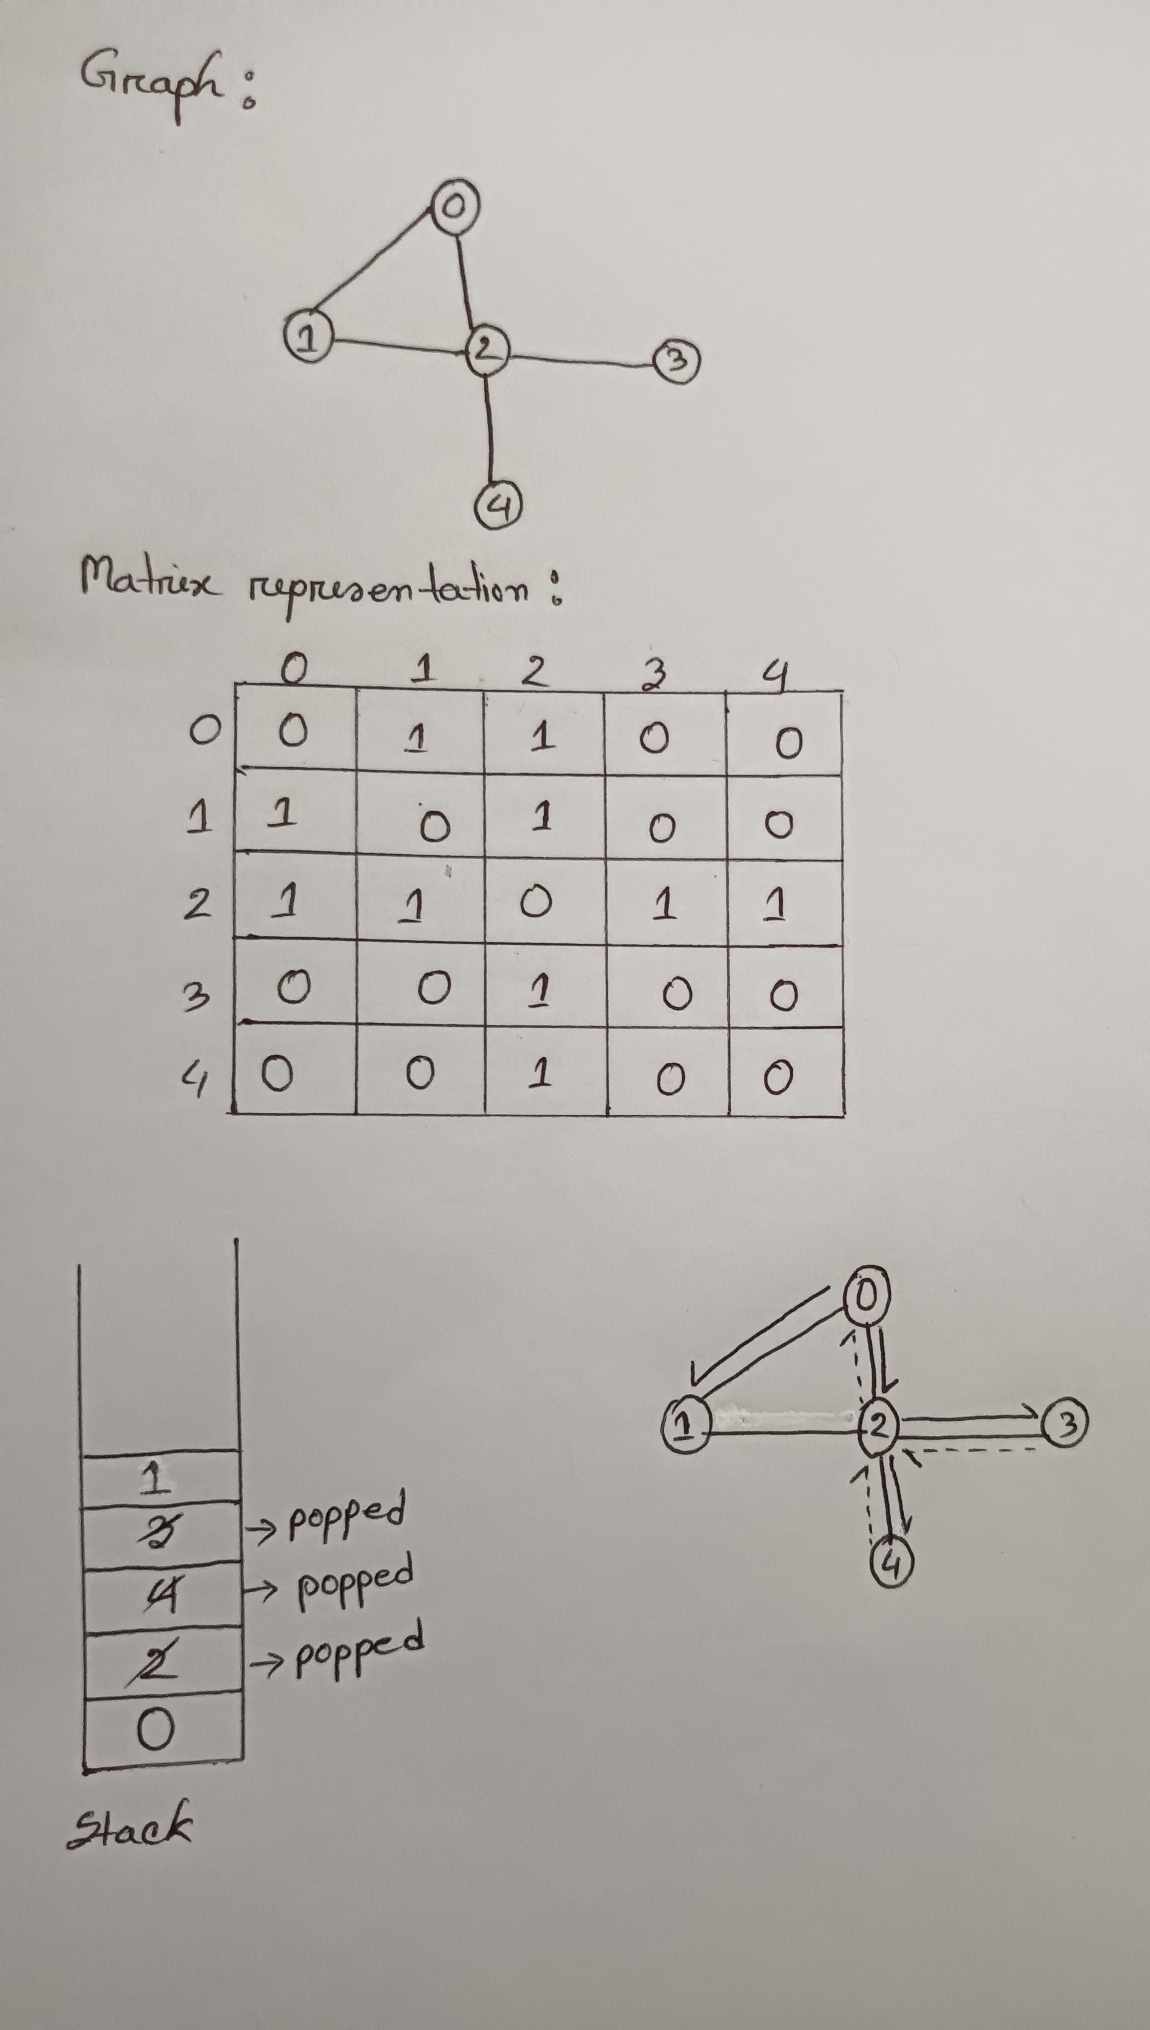 Graph:
0
1 2 3
4
Matrix representation:
0 1 2 3 4
0 0 1 1 0 0
1 1 0 1 0 0
2 1 1 0 1 1
3 0 0 1 0 0
4 0 0 1 0 0
1
3 → popped
4 → popped
2 → popped
0
Stack
0
1 2 3
4